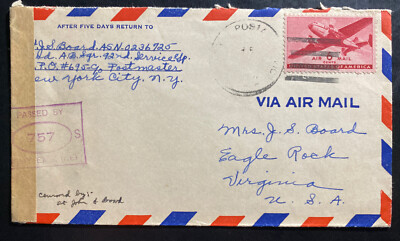 AFTER FIVE DAYS RETURN TO
J.S. Board ASN.9236725
Hd. A/B Sqr. 92nd. Service Gp.
A.P.O. #695 c/o Postmaster
New York City, N.Y.
POST
AIR MAIL
6
CENTS
UNITED STATES OF AMERICA
VIA AIR MAIL
PASSED BY
757 S
Mrs. J. S. Board
Eagle Rock
Virginia
U.S.A
Censored by:-
John S Board